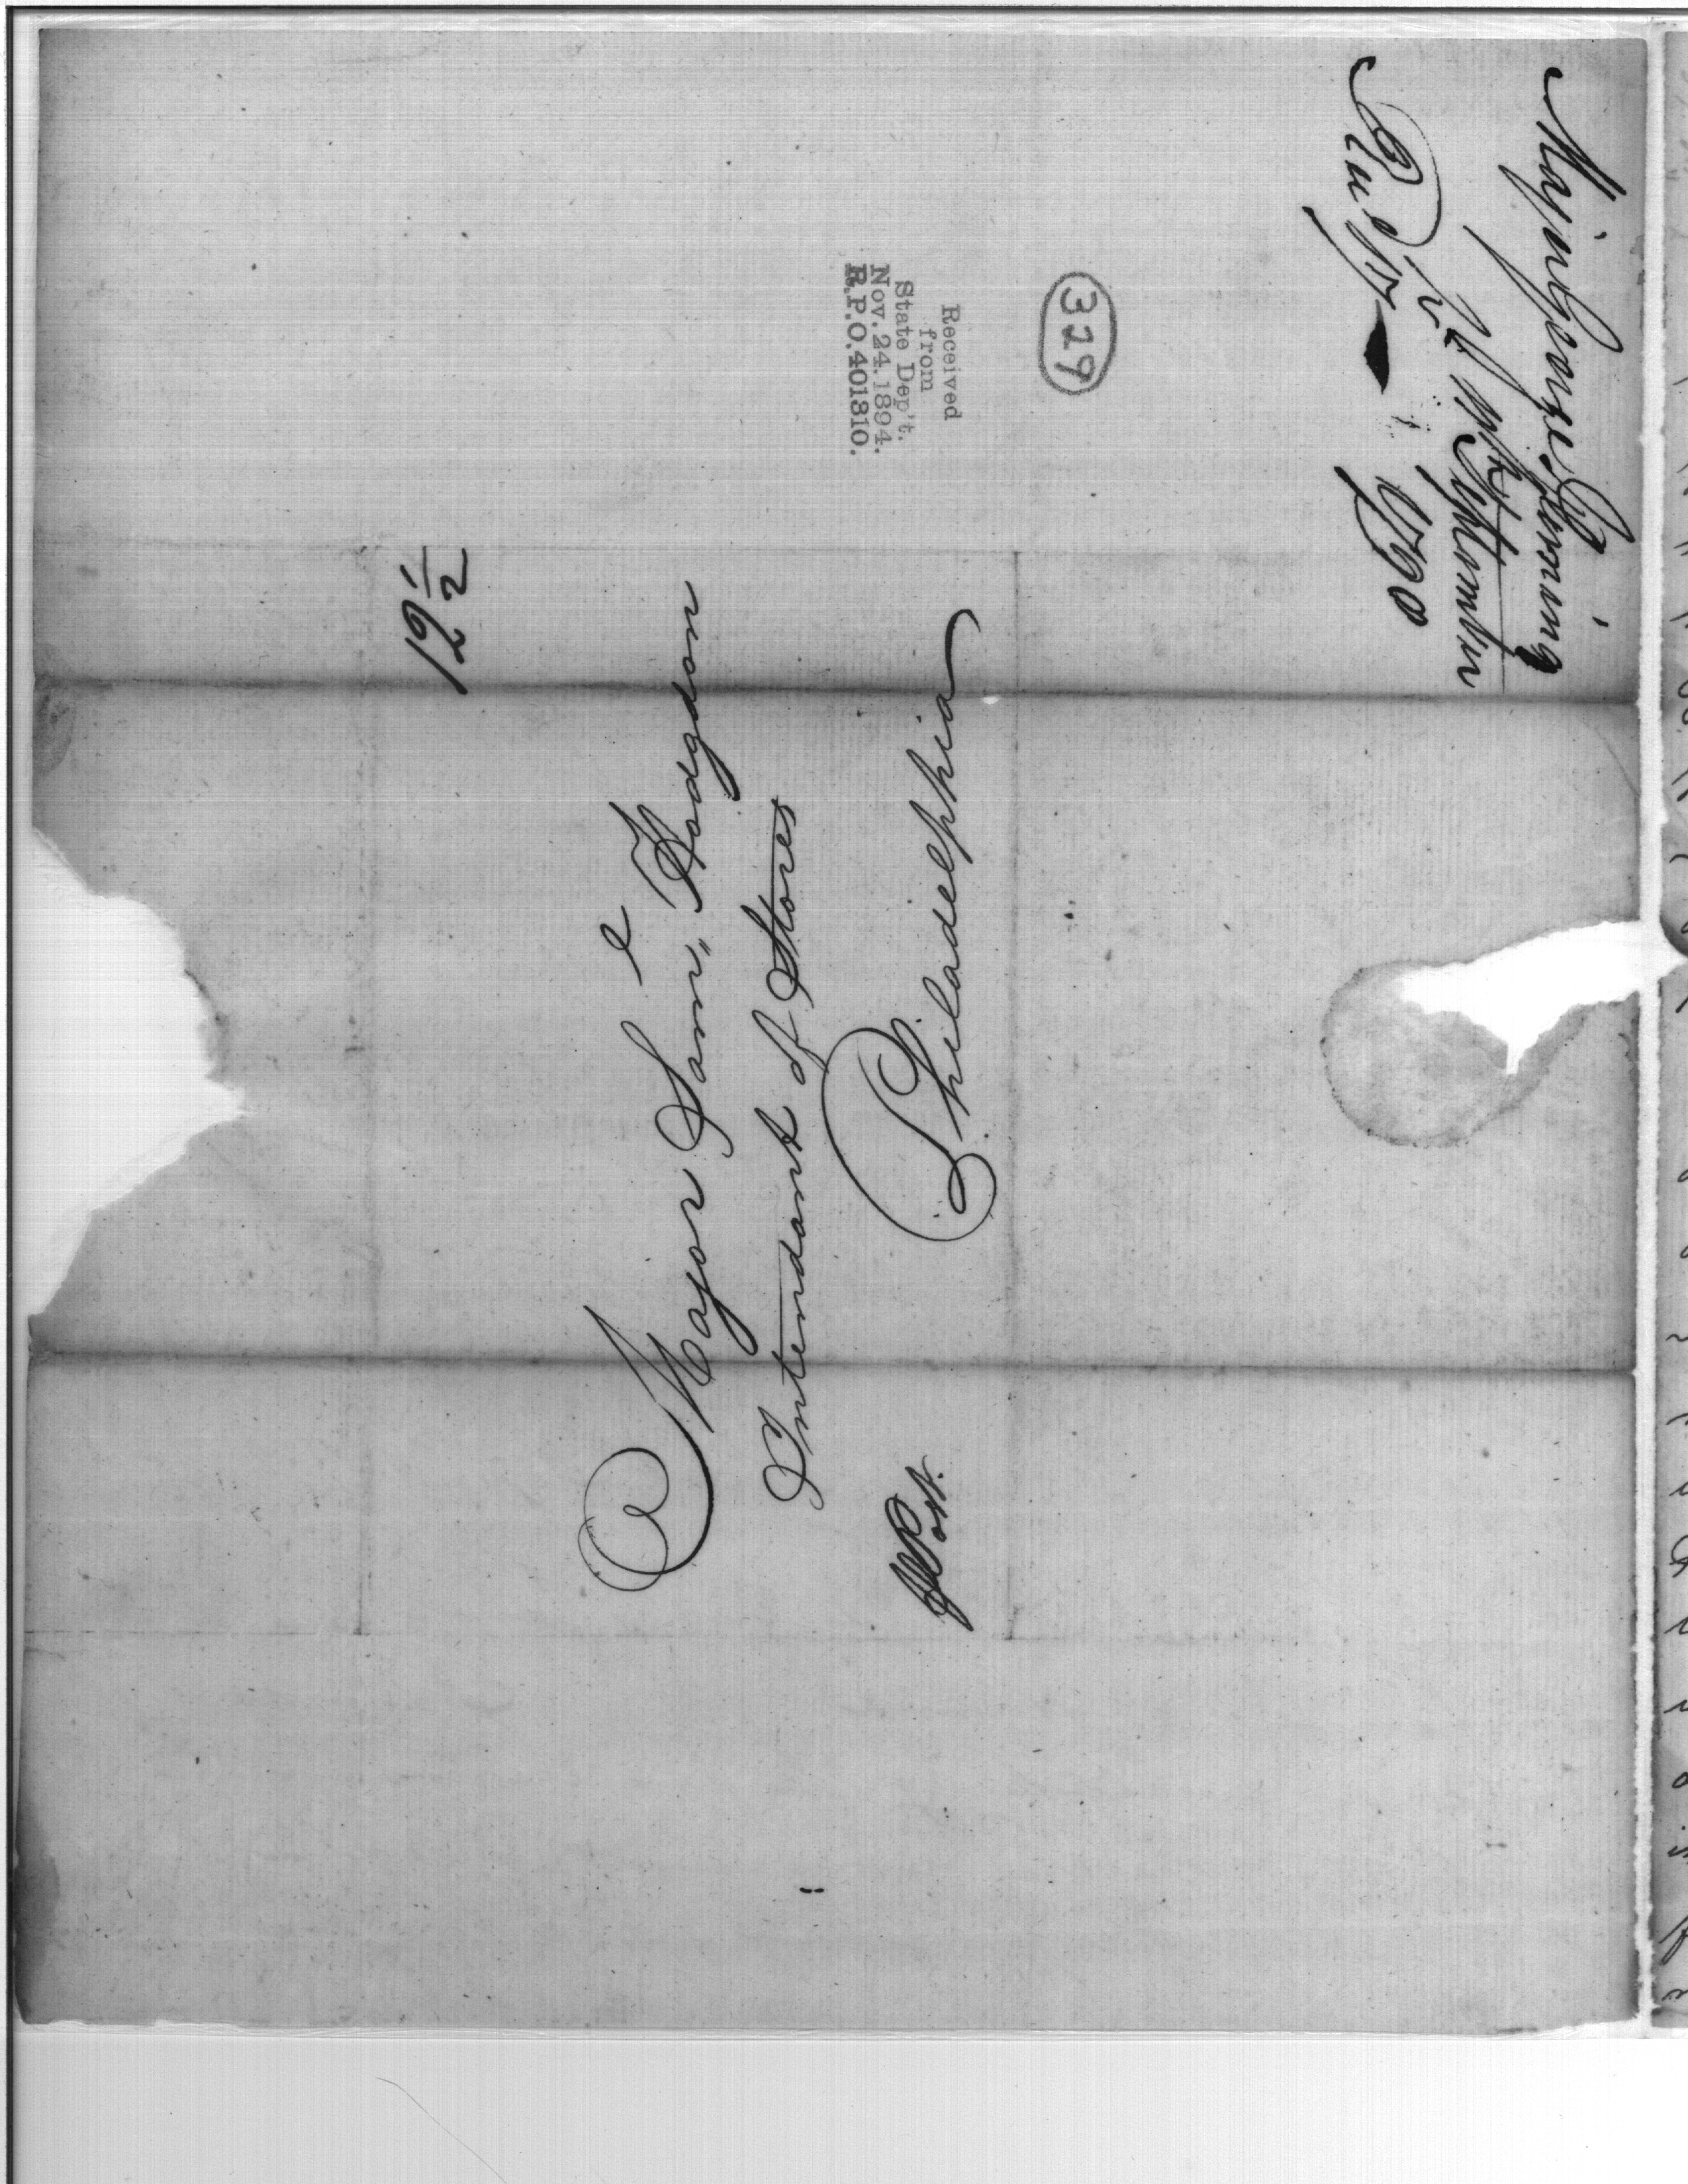 Major George Fleming
September
1790
329
Received
from
State Dep't.
Nov. 24. 1894.
R.P.O. 401310.
19 1/2
Major Sam^l Hodgdon
Intendant of Stores
Philadelphia
Post.